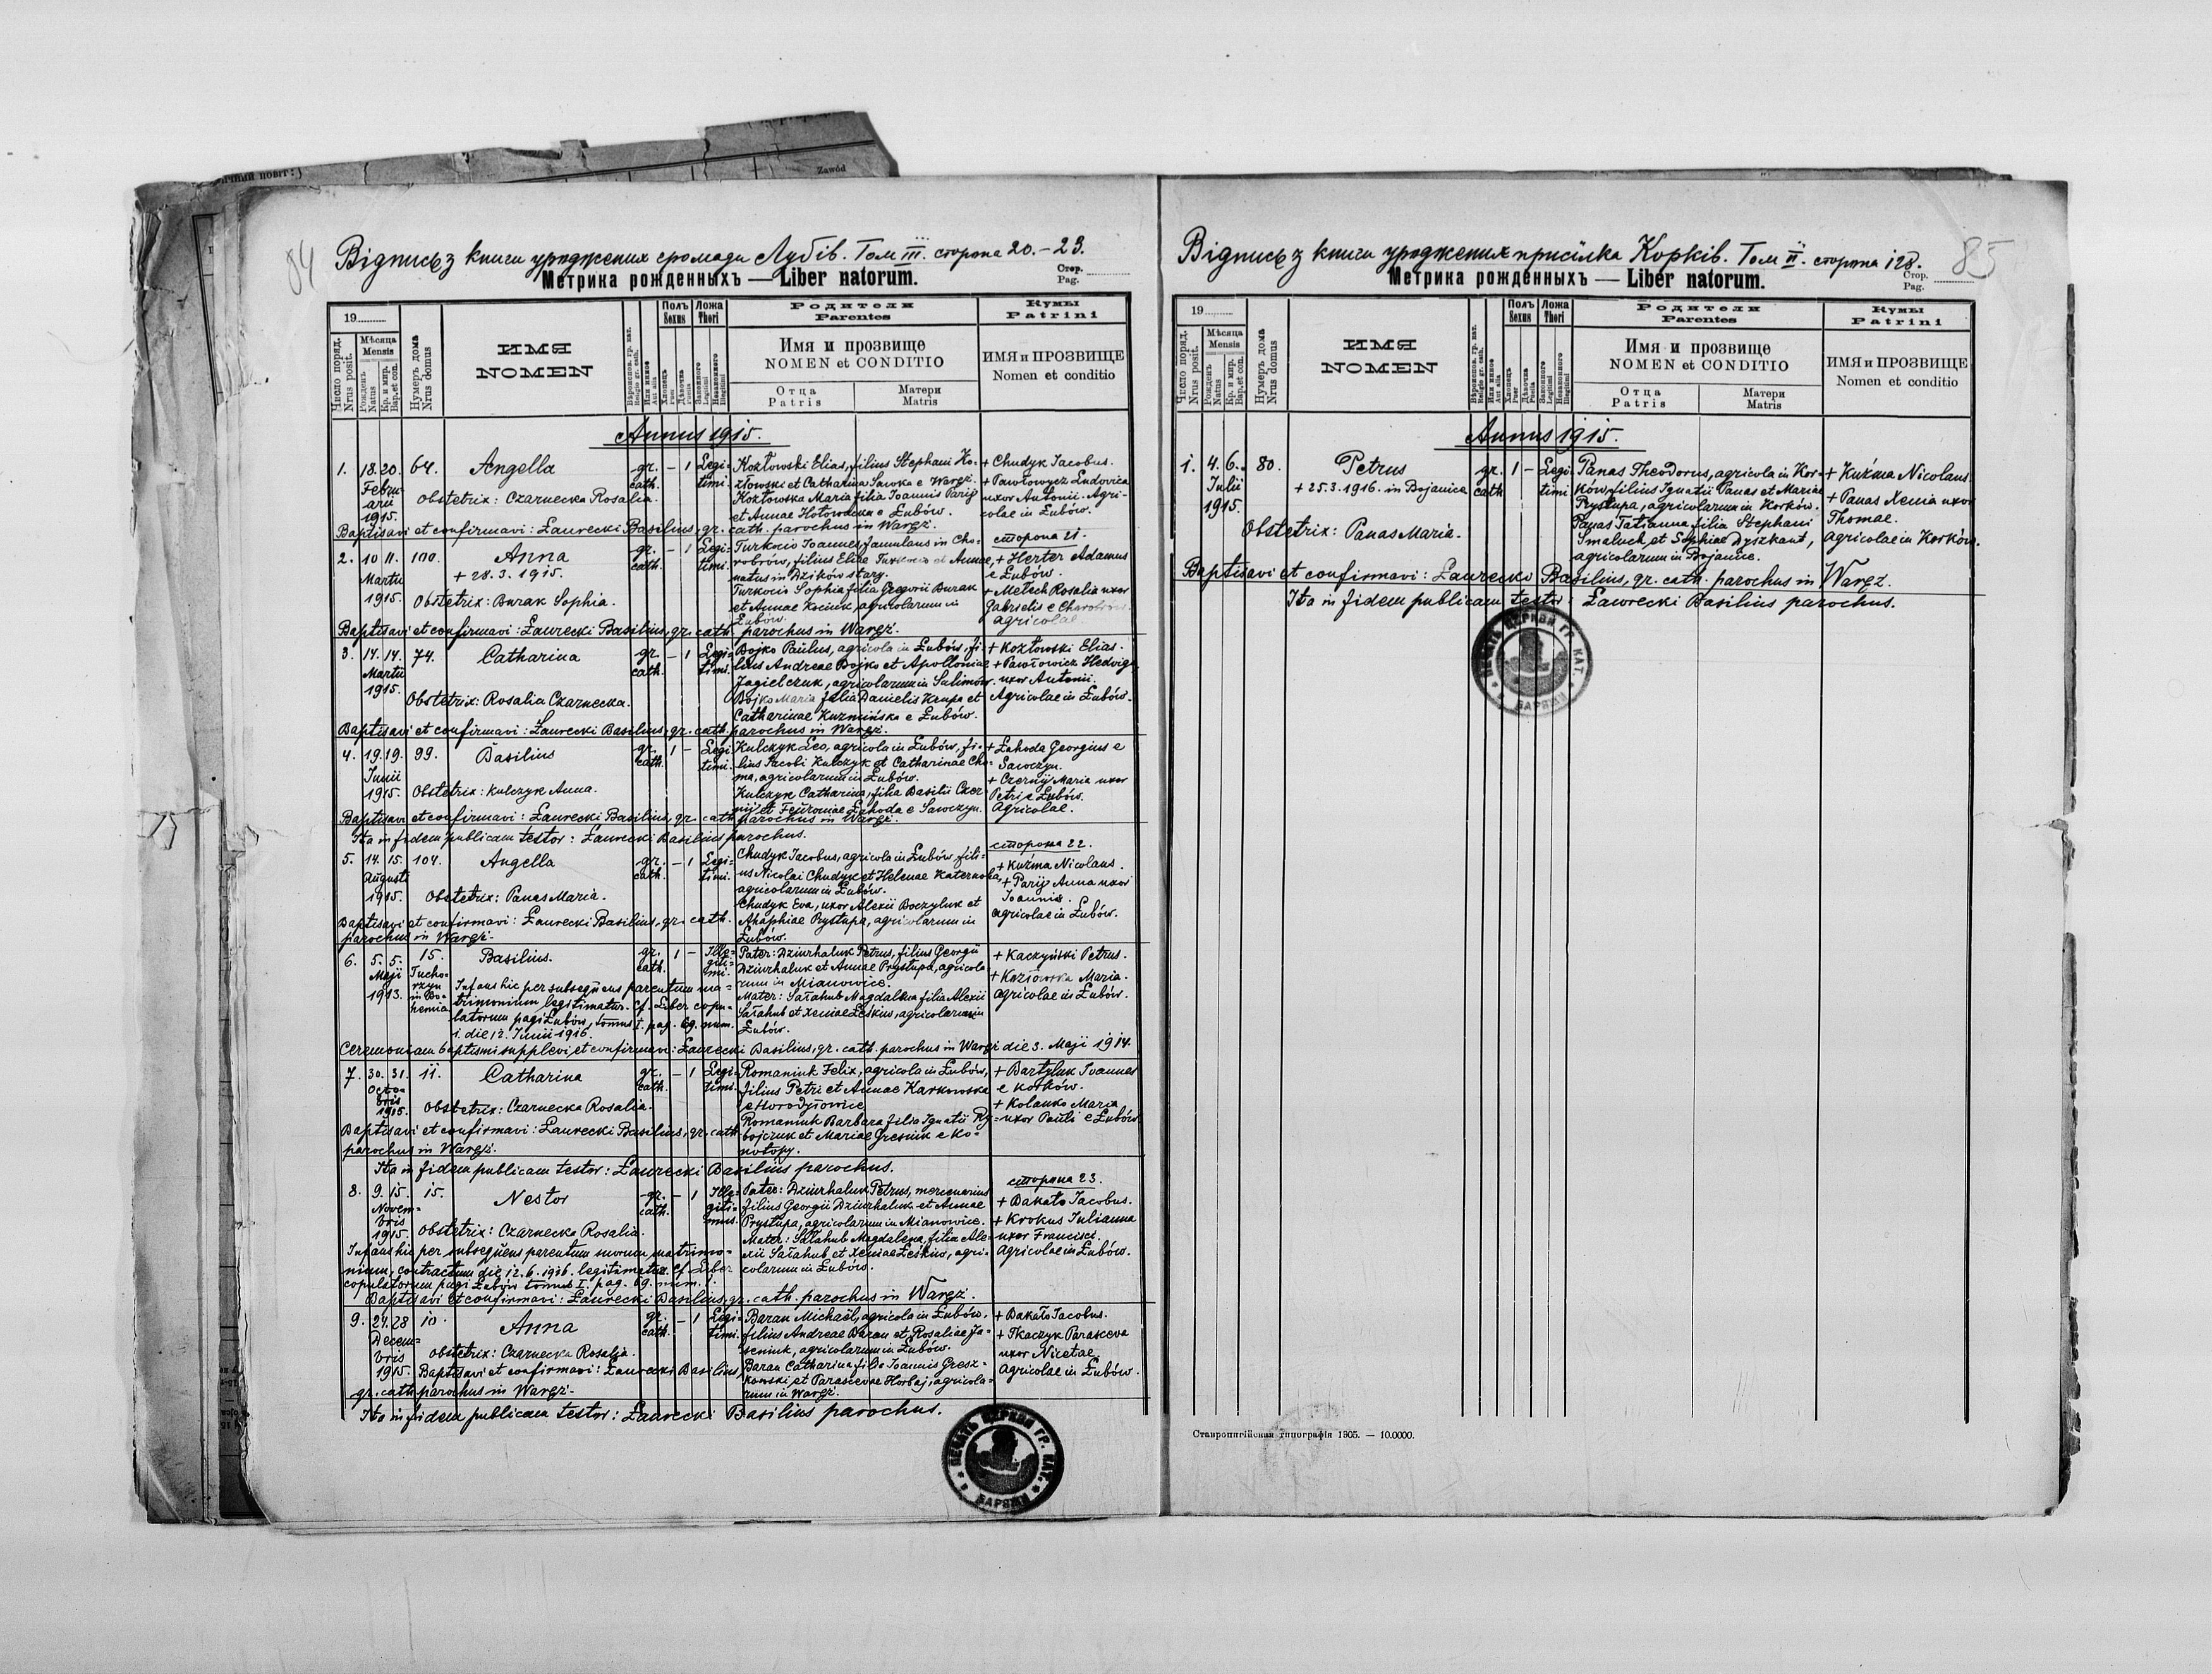 84
Відпись з книги уроджених громади Лубів. Том III. сторона 20.-23.
Метрика рожденныхъ — Liber natorum.
Стор.
Pag.
19
Число поряд.
Nrus posit.
Мѣсяца
Mensis
Рожденъ
Natus
Кр. и мир.
Bap. et con.
Нумеръ дома
Nrus domus
ИМЯ
NOMEN
Полъ
Sexus
Ложа
Thori
Родители
Parentes
Имя и прозвище
NOMEN et CONDITIO
Отца
Patris
Матери
Matris
Кумы
Patrini
ИМЯ и ПРОЗВИЩЕ
Nomen et conditio
Annus 1915.
1. 18. 20. Februarii 1915. 64. Angella gr. cath. – 1 Legitimi.
Obstetrix: Czarnecka Rosalia.
Kozłowski Elias, filius Stephani Ko-
złowski et Catharina Sawka e Waręż.
Kozłowska Maria filia Joannis Parij
et Annae Hotowacka e Łubów.
+ Chudyk Jacobus.
+ Pawłowycz Ludovica
uxor Antonii. Agri-
colae in Łubów.
Baptisavi et confirmavi: Łaurecki Basilius, gr. cath. parochus in Waręż.
сторона 21.
2. 10 11. Martii 1915. 100. Anna gr. cath. – 1 Legitimi.
+ 28. 3. 1915.
Obstetrix: Burak Sophia.
Turkocio Joannes, famulans in Cho-
robrów, filius Eliae Turkocio et Annae,
natus in Dzików stary.
Turkocio Sophia filia Gregorii Burak
et Annae Kociuk, agricolarum in
Łubów.
+ Herter Adamus
e Łubów.
+ Melech Rosalia uxor
Gabrielis e
agricolae
Baptisavi et confirmavi: Łaurecki Basilius, gr. cath. parochus in Waręż.
3. 14. 14. Martii 1915. 74. Catharina gr. cath. – 1 Legitimi.
Obstetrix: Rosalia Czarnecka.
Bojko Paulus, agricola in Łubów, fi-
lius Andreae Bojko et Apolloniae
Jagielczuk, agricolarum in Sulimów.
Bojko Maria filia Danielis Krupa et
Catharinae Kuzmińska e Łubów.
+ Kozłowski Elias.
+ Pawłowicz Hedvigis
uxor Antonii.
Agricolae in Łubów.
Baptisavi et confirmavi: Łaurecki Basilius, gr. cath. parochus in Waręż.
4. 19. 19. Junii 1915. 99. Basilius gr. cath. 1 – Legitimi.
Obstetrix: Kulczyk Anna.
Kulczyk Leo, agricola in Łubów, fi-
lius Jacobi Kulczyk et Catharinae Cho-
ma, agricolarum in Łubów.
Kulczyk Catharina, filia Basilii Czer-
nij et Feuroniae Łahoda e Sawczyn.
+ Łahoda Georgius e
Sawczyn.
+ Czernij Maria uxor
Petri e Łubów.
Agricolae.
Baptisavi et confirmavi: Łaurecki Basilius, gr. cath. parochus in Waręż.
Ita in fidem publicam testor: Łaurecki Basilius parochus.
сторона 22.
5. 14. 15. Augusti 1915. 104. Angella gr. cath. – 1 Legitimi.
Obstetrix: Panas Maria.
Chudyk Jacobus, agricola in Łubów, fili-
us Nicolai Chudyk et Helenae Katernoha,
agricolarum in Łubów.
Chudyk Eva, uxor Alexii Boczyluk et
Ahaphiae Prystupa, agricolarum in
Łubów.
+ Kuźma Nicolaus.
+ Parij Anna uxor
Joannis.
agricolae in Łubów.
Baptisavi et confirmavi: Łaurecki Basilius, gr. cath.
parochus in Waręż.
6. 5. 5. Maji 1913. 15. Tuchorzyn in Bohemia Basilius. gr. cath. 1 – Illegitimi.
Infans hic per subsequens parentum ma-
trimonium legitimatur. Cf. Liber copu-
latorum pagi Łubów, tomus I. pag. 69. num.
1. die 12. Junii 1916.
Pater: Dziurhaluk Petrus, filius Georgii
Dziurhaluk et Annae Prystupa, agricola-
rum in Mianowice.
Mater: Sałahub Magdalena filia Alexii
Sałahub et Xeniae Leśkiw, agricolarum in
Łubów.
+ Kaczyński Petrus.
+ Kozłowska Maria.
agricolae in Łubów.
Ceremoniam baptismi supplevi et confirmavi: Łaurecki Basilius, gr. cath. parochus in Waręż die 3. Maji 1914.
7. 30. 31. Octobris 1915. 11. Catharina gr. cath. – 1 Legitimi.
Obstetrix: Czarnecka Rosalia.
Romaniuk Felix, agricola in Łubów,
filius Petri et Annae Karkowska
e Horodyłowice
Romaniuk Barbara filia Ignatii Ry-
bojczuk et Mariae Gresiuk e Ko-
notopy.
+ Bartyluk Joannes
e Korków.
+ Kolanko Maria
uxor Pauli e Łubów
Baptisavi et confirmavi: Łaurecki Basilius, gr. cath.
parochus in Waręż.
Ita in fidem publicam testor: Łaurecki Basilius parochus.
сторона 23.
8. 9. 15. Novembris 1915. 15. Nestor gr. cath. – 1 Illegitimus.
Obstetrix: Czarnecka Rosalia.
Infans hic per subsequens parentum suorum matrimo-
nium, contractum die 12. 6. 1916. legitimatur. Cf. Liber
copulatorum pagi Łubów tomus I. pag. 69. num. 1.
Pater: Dziurhaluk Petrus, mercenarius
filius Georgii Dziurhaluk et Annae
Prystupa, agricolarum in Mianowice.
Mater: Sałahub Magdalena, filia Ale-
xii Sałahub et Xeniae Leśkiw, agri-
colarum in Łubów.
+ Bakało Jacobus.
+ Krokus Julianna
uxor Francisci.
Agricolae in Łubów.
Baptisavi et confirmavi: Łaurecki Basilius, gr. cath. parochus in Waręż.
9. 27. 28 Decembris 1915. 10. Anna gr. cath. – 1 Legitimi.
Obstetrix: Czarnecka Rosalia.
Baran Michaël, agricola in Łubów,
filius Andreae Baran et Rosaliae Ja-
seniuk, agricolarum in Łubów.
Baran Catharina filia Joannis Gresz-
kowski et Parascevae Horbaj, agricola-
rum in Waręż.
+ Bakało Jacobus.
+ Tkaczyk Parasceva
uxor Nicetae.
Agricolae in Łubów.
Baptisavi et confirmavi: Łaurecki Basilius,
gr. cath. parochus in Waręż.
Ita in fidem publicam testor: Łaurecki Basilius parochus.
ПЕЧАТЬ ЦЕРКВИ ГР. КАТ.
85
Відпись з книги уроджених присілка Корків. Том II. сторона 128.
Метрика рожденныхъ — Liber natorum.
Стор.
Pag.
19
Число поряд.
Nrus posit.
Мѣсяца
Mensis
Рожденъ
Natus
Кр. и мир.
Bap. et con.
Нумеръ дома
Nrus domus
ИМЯ
NOMEN
Полъ
Sexus
Ложа
Thori
Родители
Parentes
Имя и прозвище
NOMEN et CONDITIO
Отца
Patris
Матери
Matris
Кумы
Patrini
ИМЯ и ПРОЗВИЩЕ
Nomen et conditio
Annus 1915.
1. 4. 6. Julii 1915. 80. Petrus gr. cath 1 – Legitimi
+ 25. 3. 1916. in Bojanice
Obstetrix: Panas Maria.
Panas Theodorus, agricola in Kor-
ków, filius Ignatii Panas et Mariae
Prystupa, agricolarum in Korków.
Panas Tatianna filia Stephani
Smaluch et Sophiae Dyszkant,
agricolarum in Bojanice.
+ Kuźma Nicolaus
+ Panas Xenia uxor
Thomae.
agricolae in Korków.
Baptisavi et confirmavi: Łaurecki Basilius, gr. cath. parochus in Waręż.
Ita in fidem publicam testor: Ławrecki Basilius parochus.
ПЕЧАТЬ ЦЕРКВИ ГР. КАТ.
Ставропигійская типографія 1905. — 10.0000.
Zawód